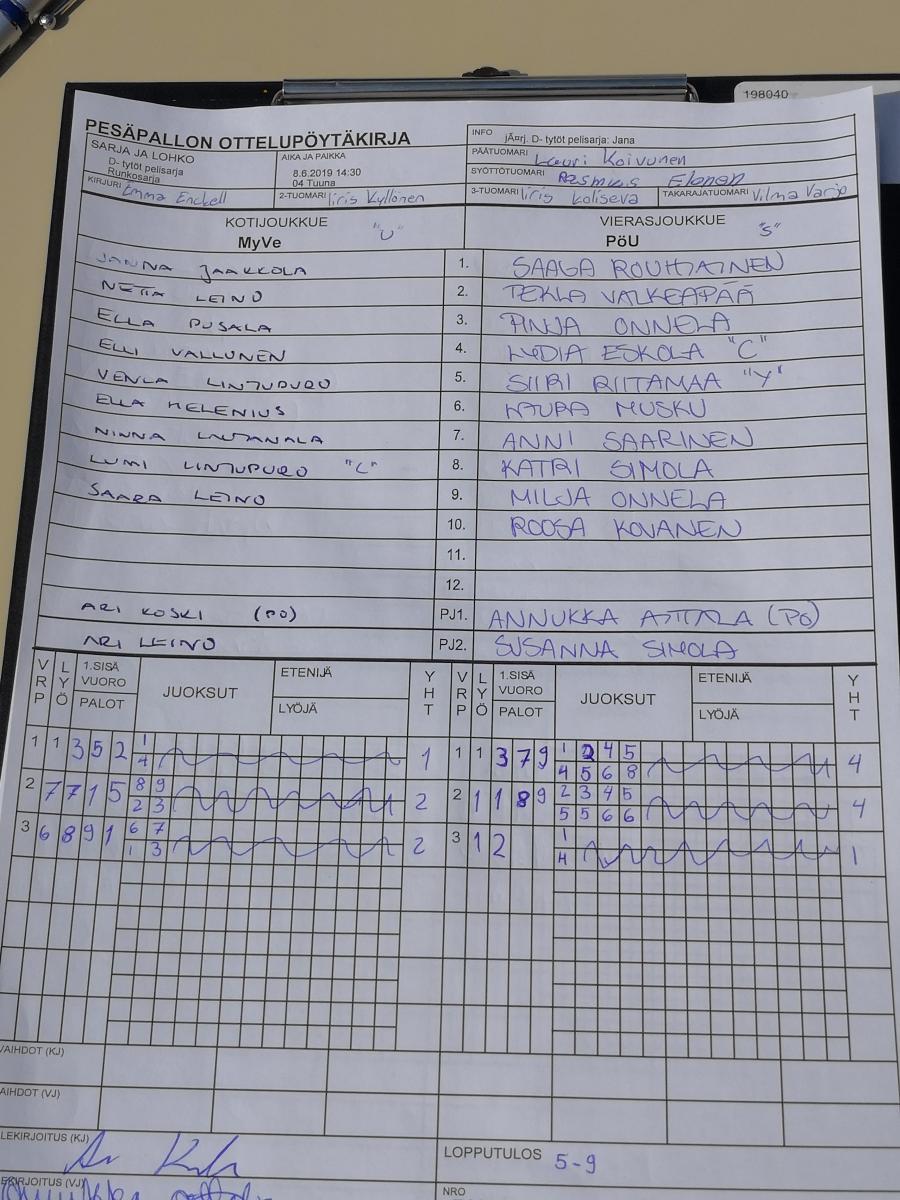 198040
PESÄPALLON OTTELUPÖYTÄKIRJA
INFO jÃ¤rj. D- tytöt pelisarja: Jana
SARJA JA LOHKO
D- tytöt pelisarja
Runkosarja
AIKA JA PAIKKA
8.6.2019 14:30
04 Tuuna
PÄÄTUOMARI Lauri Koivunen
SYÖTTÖTUOMARI Rasmus Elonen
KIRJURI Emma Enckell
2-TUOMARI Iiris Kyllönen
3-TUOMARI Iiris Koliseva
TAKARAJATUOMARI Vilma Varjo
KOTIJOUKKUE "U"
MyVe
VIERASJOUKKUE "S"
PöU
JANNA JAAKKOLA 1. SAAGA ROUHIAINEN
NETTA LEINO 2. TEKLA VALKEAPÄÄ
ELLA PUSALA 3. PINJA ONNELA
ELLI VALLUNEN 4. LYDIA ESKOLA "C"
VENLA LINTUPURO 5. SIIRI RIITAMAA "Y"
ELLA HELENIUS 6. LAURA MUSKU
NINNA LAUTANALA 7. ANNI SAARINEN
LUMI LINTUPURO "C" 8. KATRI SIMOLA
SAARA LEINO 9. MILJA ONNELA
10. ROOSA KOVANEN
11.
12.
ARI KOSKI (PO) PJ1. ANNUKKA AITTALA (PO)
ARI LEINO PJ2. SUSANNA SIMOLA
VRP LYÖ 1.SISÄ VUORO PALOT JUOKSUT ETENIJÄ LYÖJÄ YHT VRP LYÖ 1.SISÄ VUORO PALOT JUOKSUT ETENIJÄ LYÖJÄ YHT
1 1 3 5 2 1 1 1 1 3 7 9 1 2 4 5 4
4 4 5 6 8
2 7 7 1 5 8 9 2 2 1 1 8 9 2 3 4 5 4
2 3 5 5 6 6
3 6 8 9 1 6 7 2 3 1 2 1 1
1 3 4
VAIHDOT (KJ)
AIHDOT (VJ)
LEKIRJOITUS (KJ)
LOPPUTULOS 5-9
EKIRJOITUS (VJ)
NRO